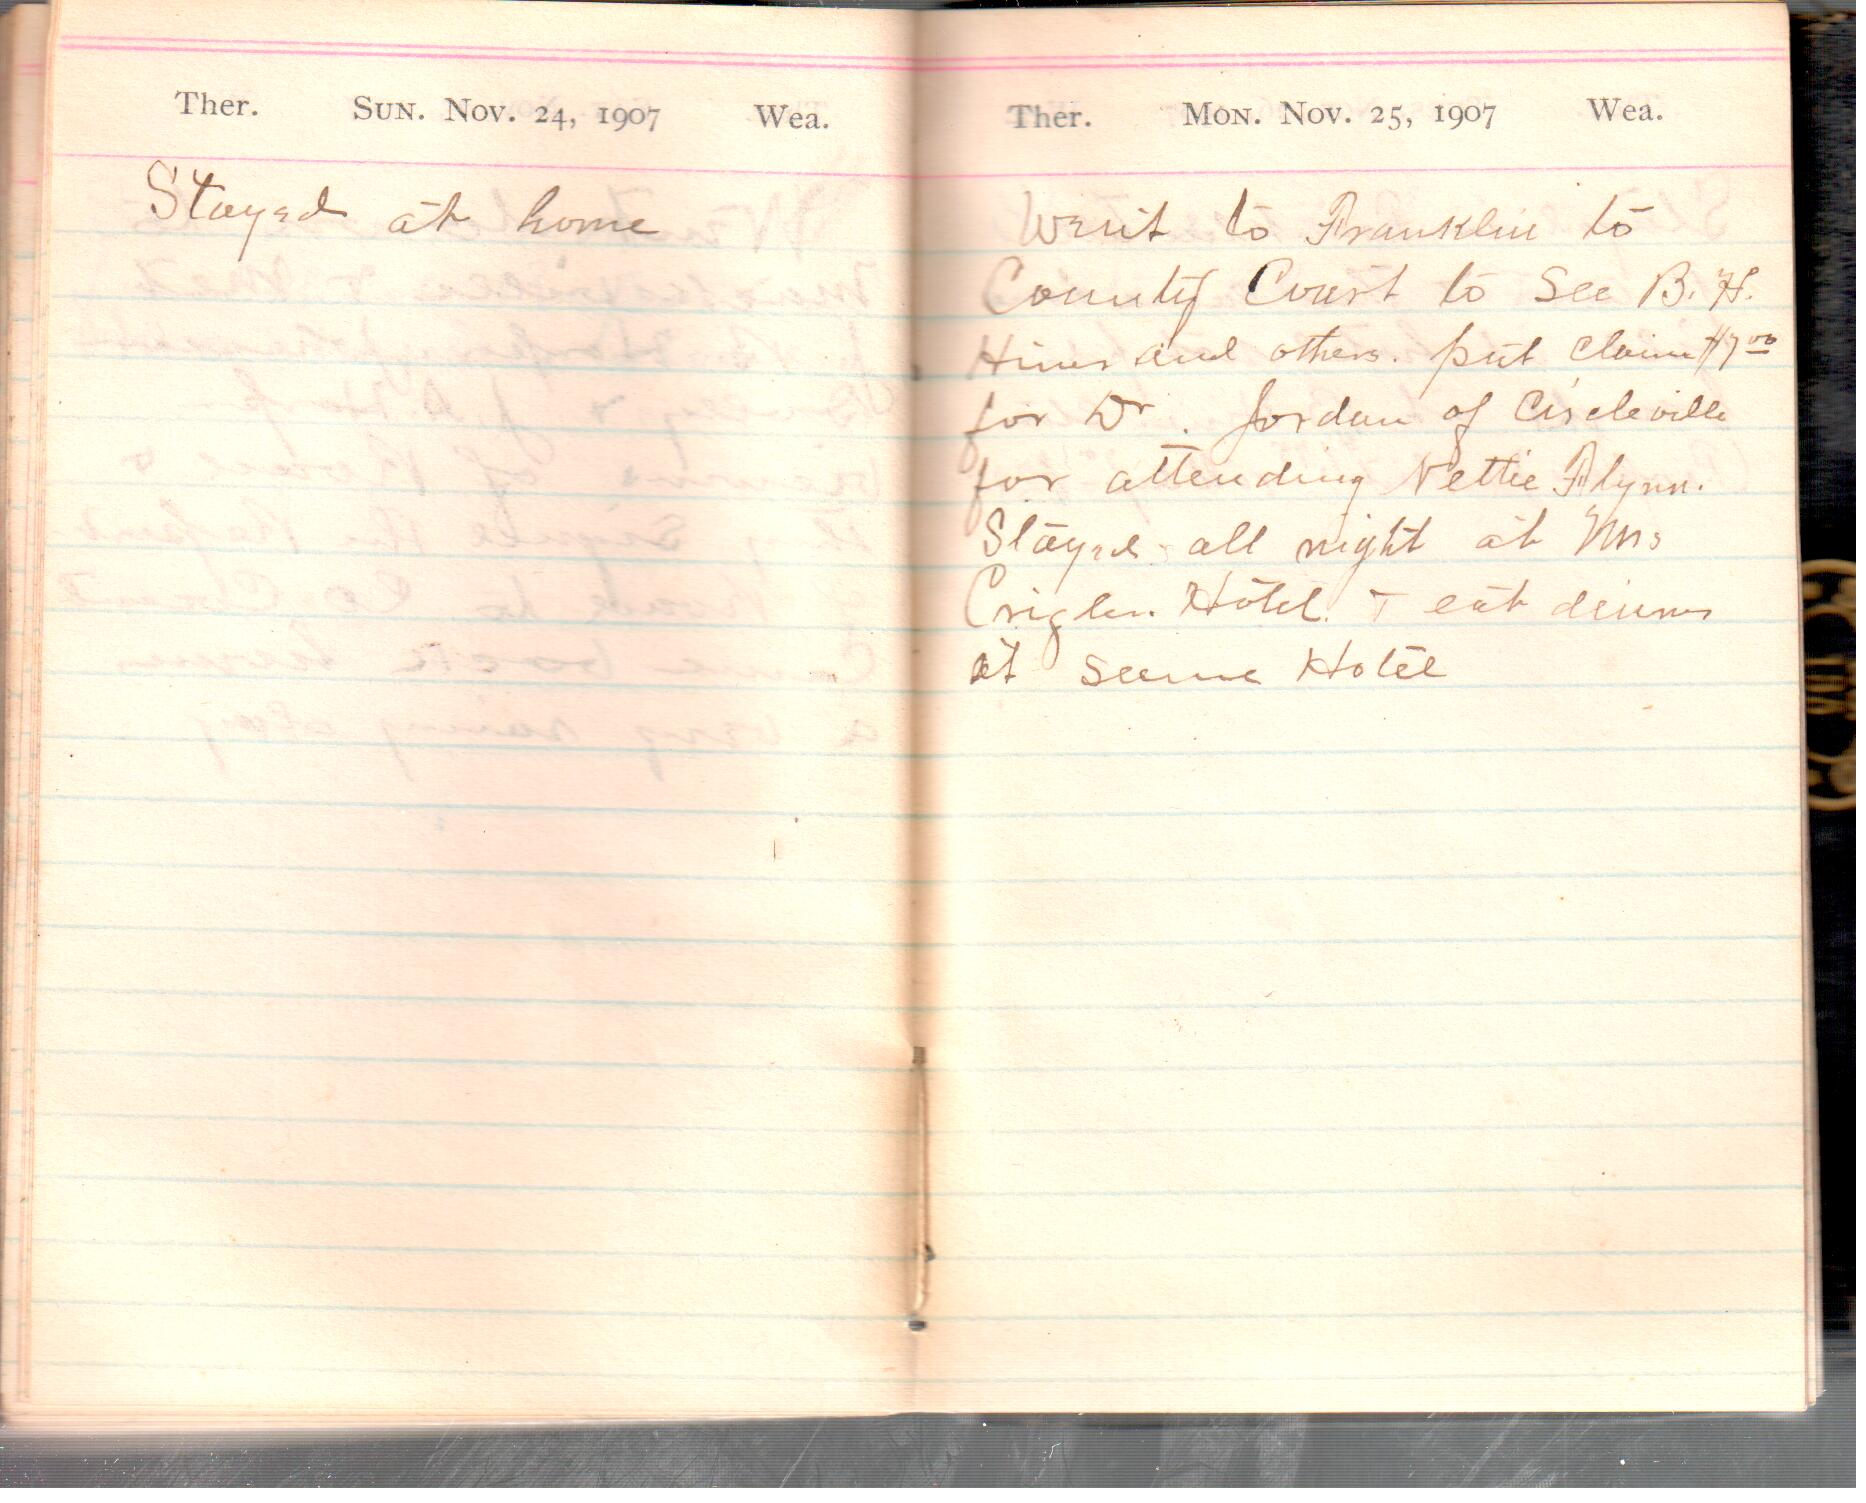 Ther. Sun. Nov. 24, 1907 Wea.
Stayed at home
Ther. Mon. Nov. 25, 1907 Wea.
Went to Franklin to
County Court to See B. H.
Hiner and others. put claim $7 00
for Dr. Jordan of Circleville
for attending Nettie Flynn.
Stayed all night at Mrs
Crigler Hotel. + eat dinner
at same Hotel